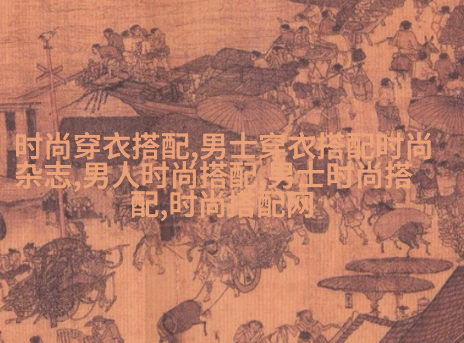 时尚穿衣搭配,男士穿衣搭配时尚
杂志,男人时尚搭配,男士时尚搭
配,时尚搭配网